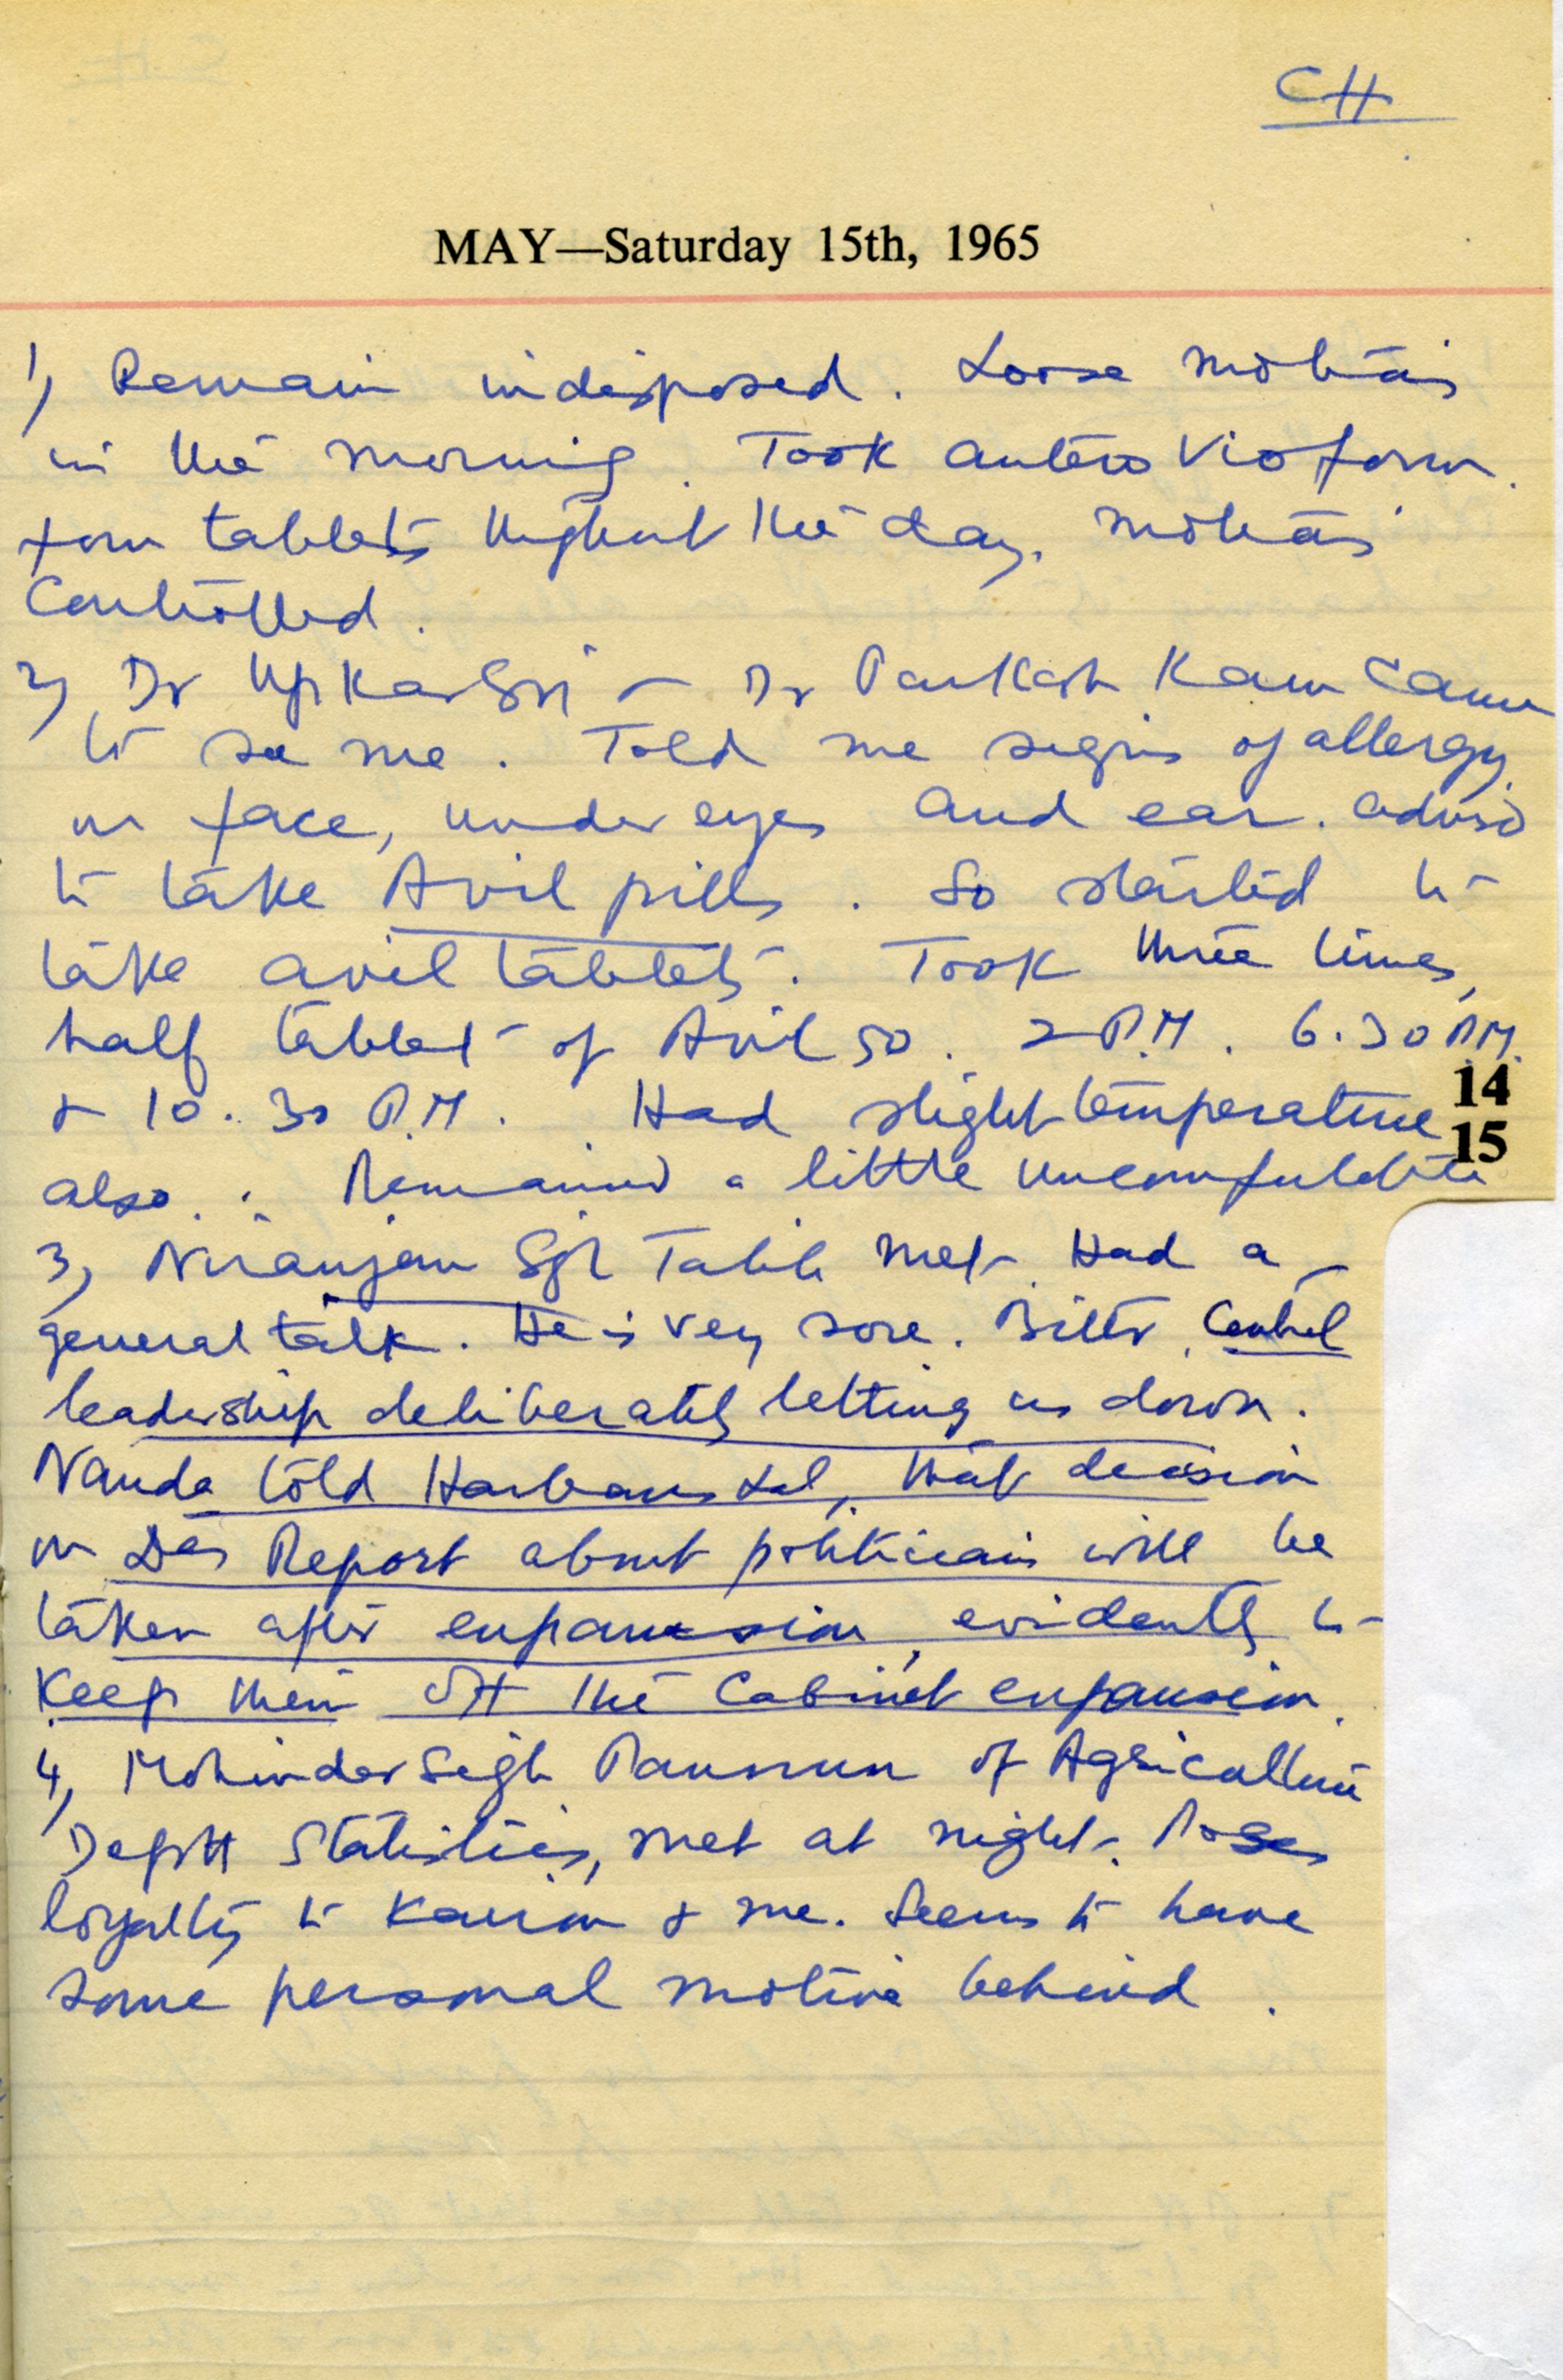 CH
MAY—Saturday 15th, 1965
1) Remain indisposed. Loose motions
in the morning. Took entero Vioform.
four tablets thghout the day. motions
Controlled.
2) Dr Upkar Sgh & Dr Parkash Kaur Came
to see me. Told me signs of allergy
on face, under eyes and ear. advised
to take Avil pills. So started to
take avil tablets. Took three times,
half tablet of Avil 50. 2 P.M. 6.30 P.M.
& 10.30 P.M. Had slight temperature
14
15
also. Remained a little uncomfortable
3) Niranjan Sgh Talib met. Had a
general talk. He is very sore. Bitter. Central
leadership deliberately letting us down.
Nanda told Harbans Lal, that decision
on Das Report about politicians will be
taken after expansion, evidently to
Keep them off the Cabinet expansion.
4) Mohinder Singh Pannun of Agriculture
Deptt Statistics, met at night. Poses
loyalty to Kairon & me. Seems to have
some personal motive behind.